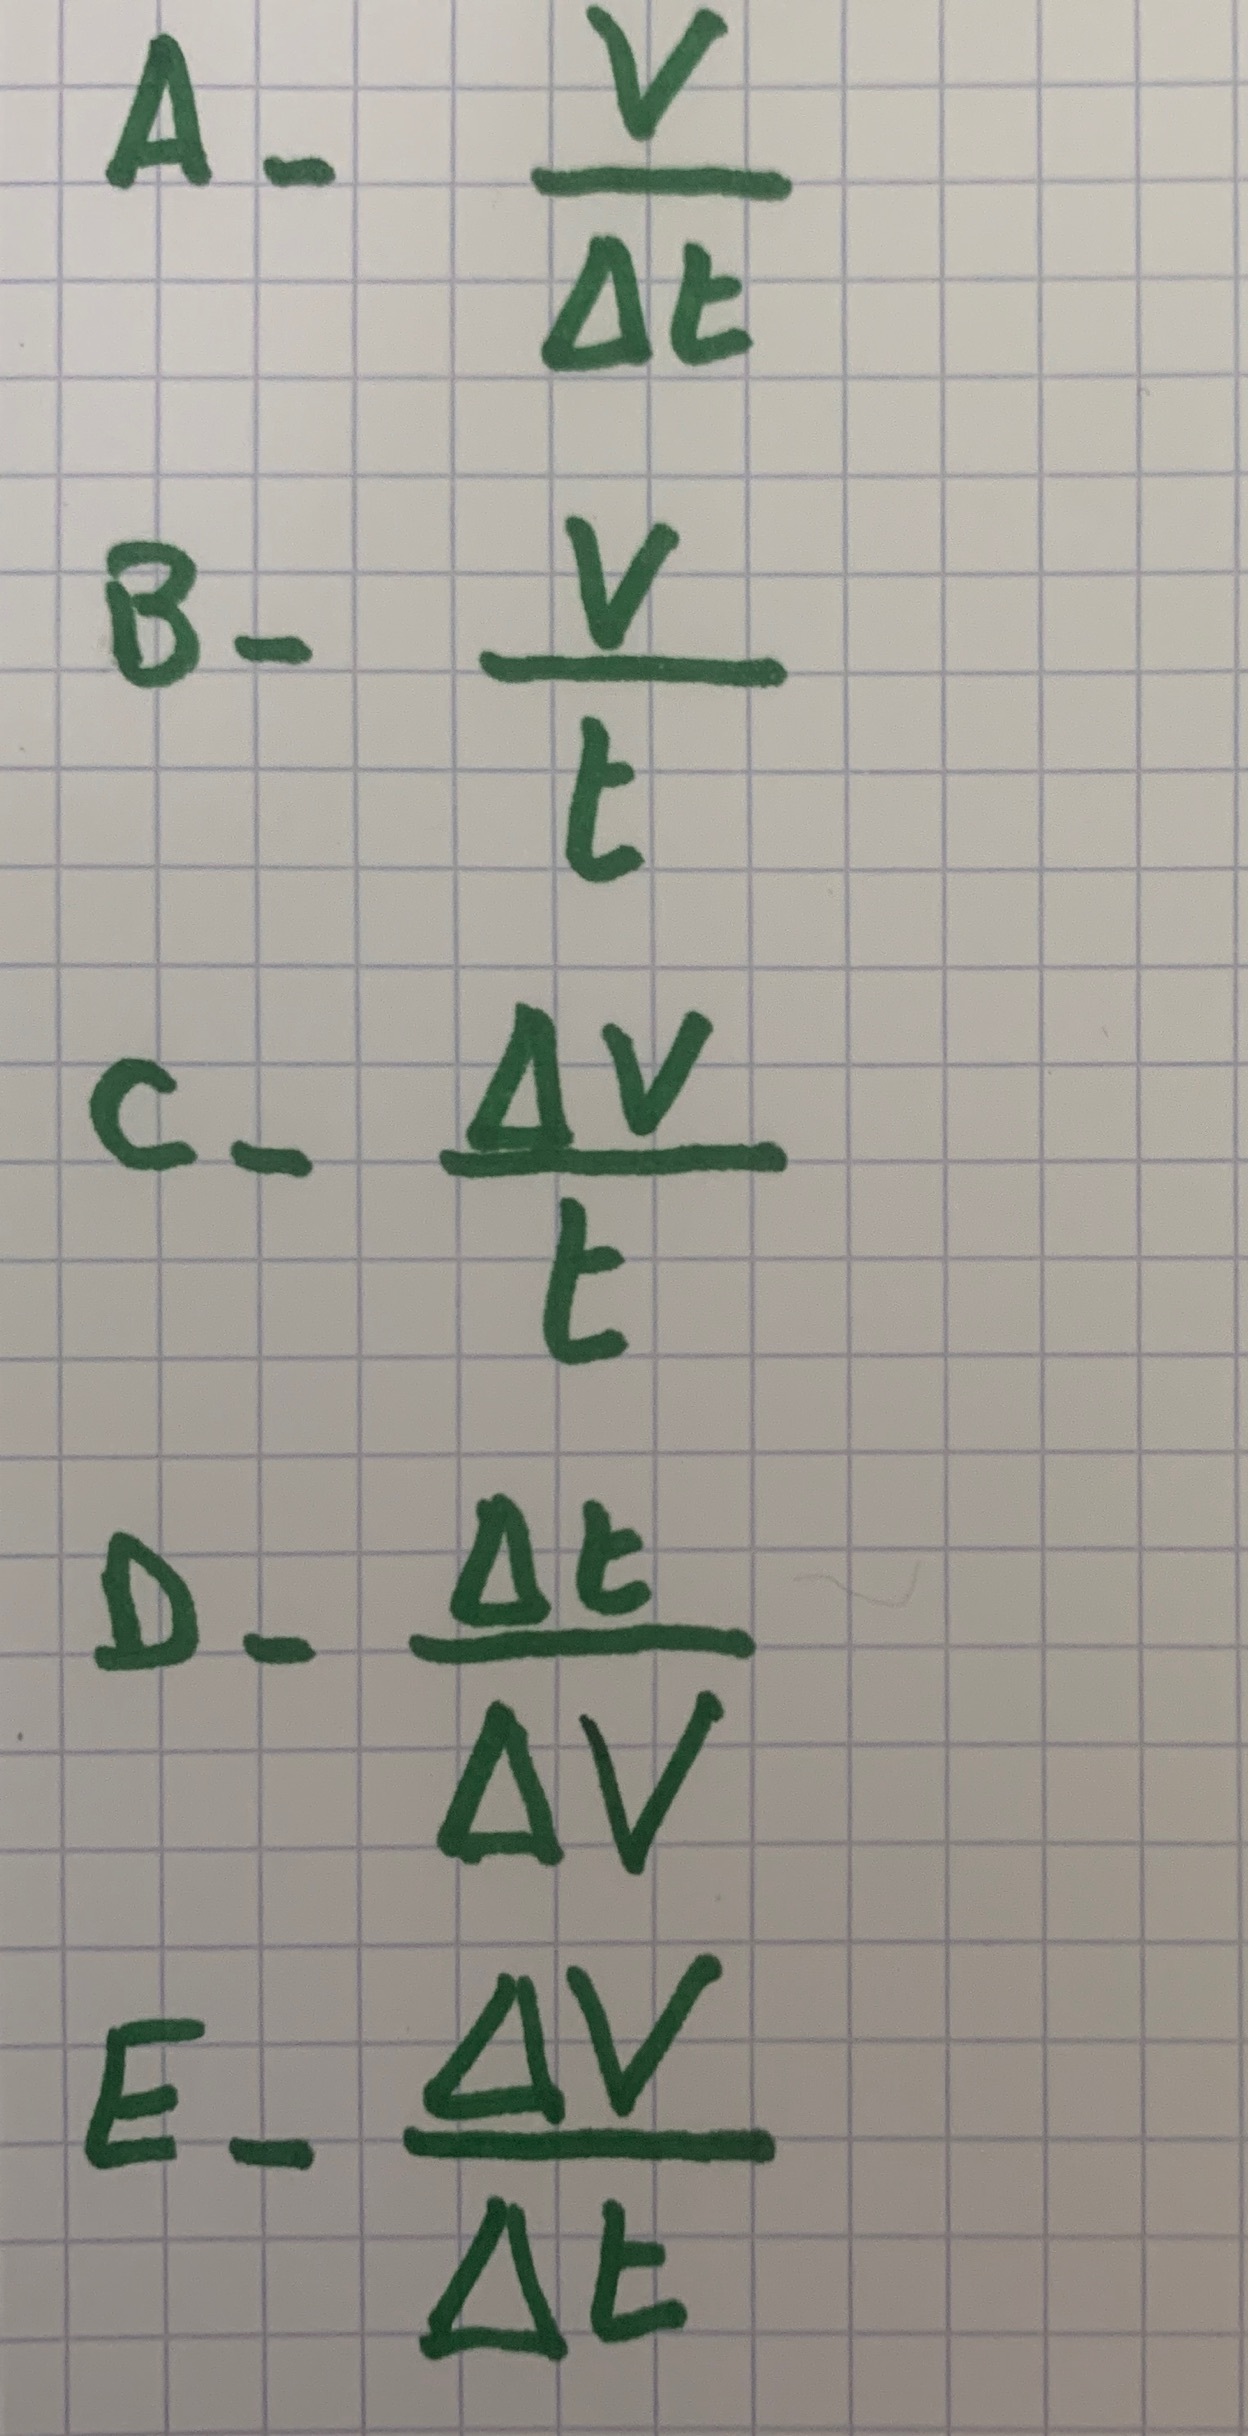 A- V
Δt
B- V
t
C- ΔV
t
D- Δt
ΔV
E- ΔV
Δt